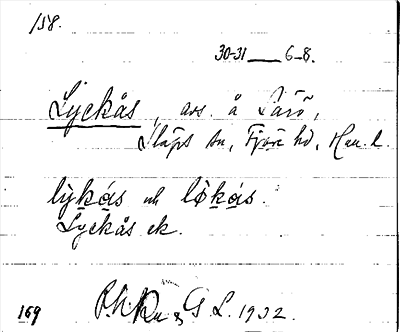 158.
30-31 — 6-8.
Lyckås, avs. å Särö,
Släps sn, Fjäre hd, Hall. l.
lỳkás och lø̀kás.
Lyckås ek.
169 G L. 1932.